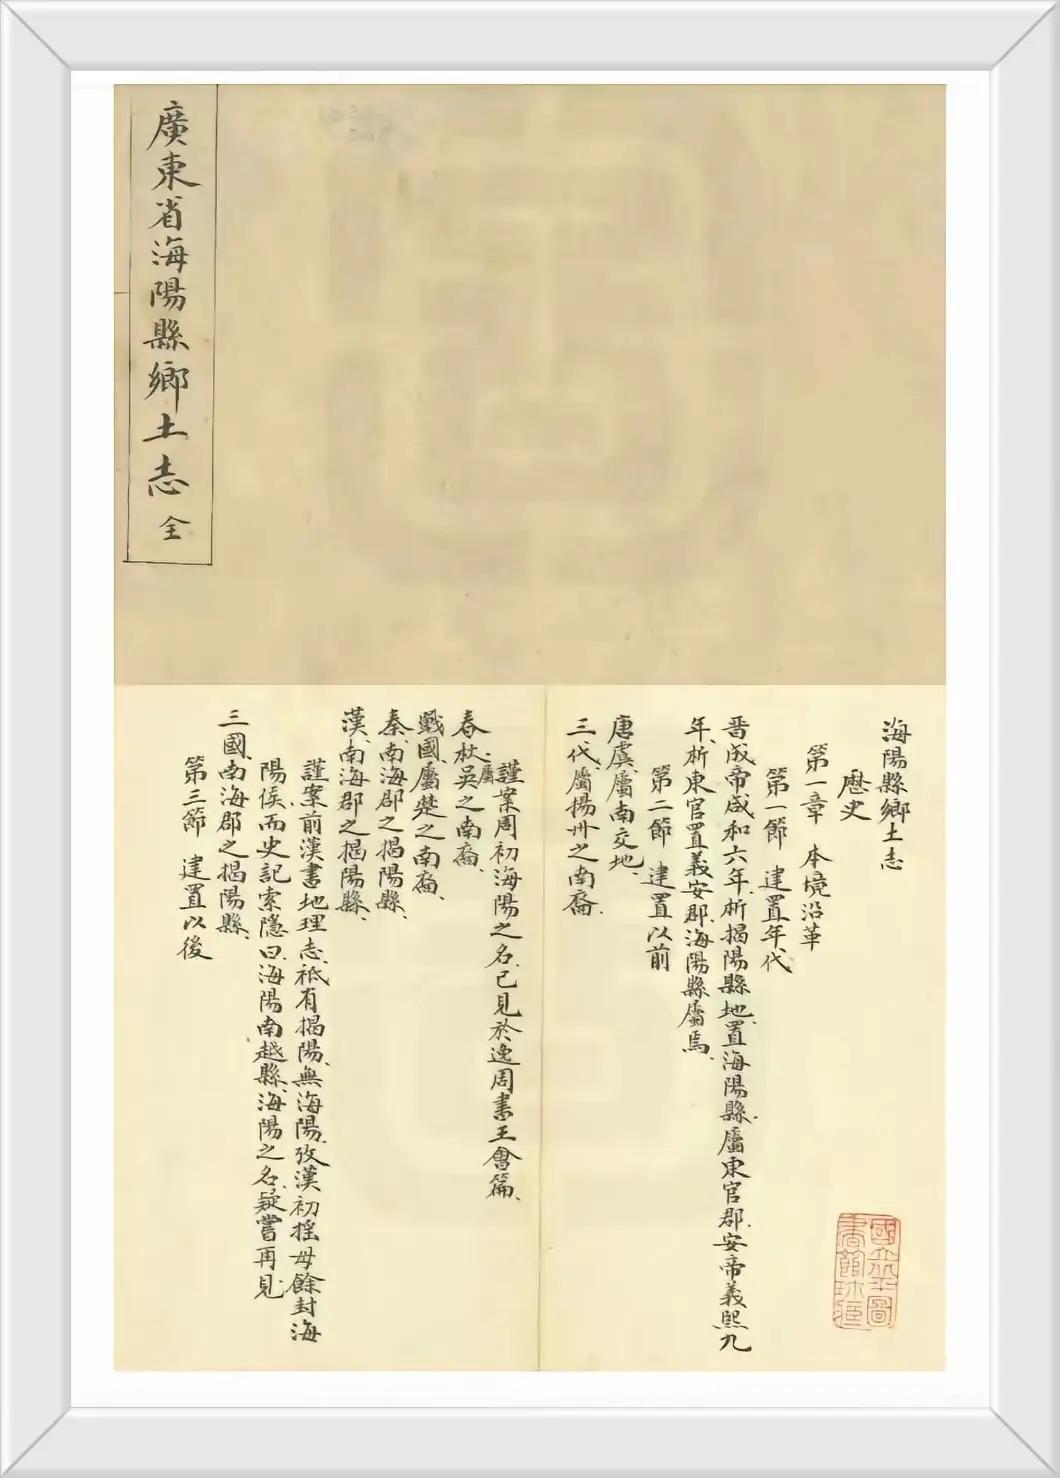 廣東省海陽縣鄉土志 全
海陽縣鄉土志
歷史
第一章 本境沿革
第一節 建置年代
晋成帝咸和六年析揭陽縣地置海陽縣屬東官郡安帝義熙九
年析東官置義安郡海陽縣屬焉
第二節 建置以前
唐虞屬南交地
三代屬揚州之南裔
謹案周初海陽之名已見於逸周書王會篇
春秋屬吳之南裔
戰國屬楚之南裔
秦南海郡之揭陽縣
漢南海郡之揭陽縣
謹案前漢書地理志祇有揭陽無海陽攷漢初搖毋餘封海
陽侯而史記索隱曰海陽南越縣海陽之名疑嘗再見
三國南海郡之揭陽縣
第三節 建置以後
國立中央圖
書館珍藏